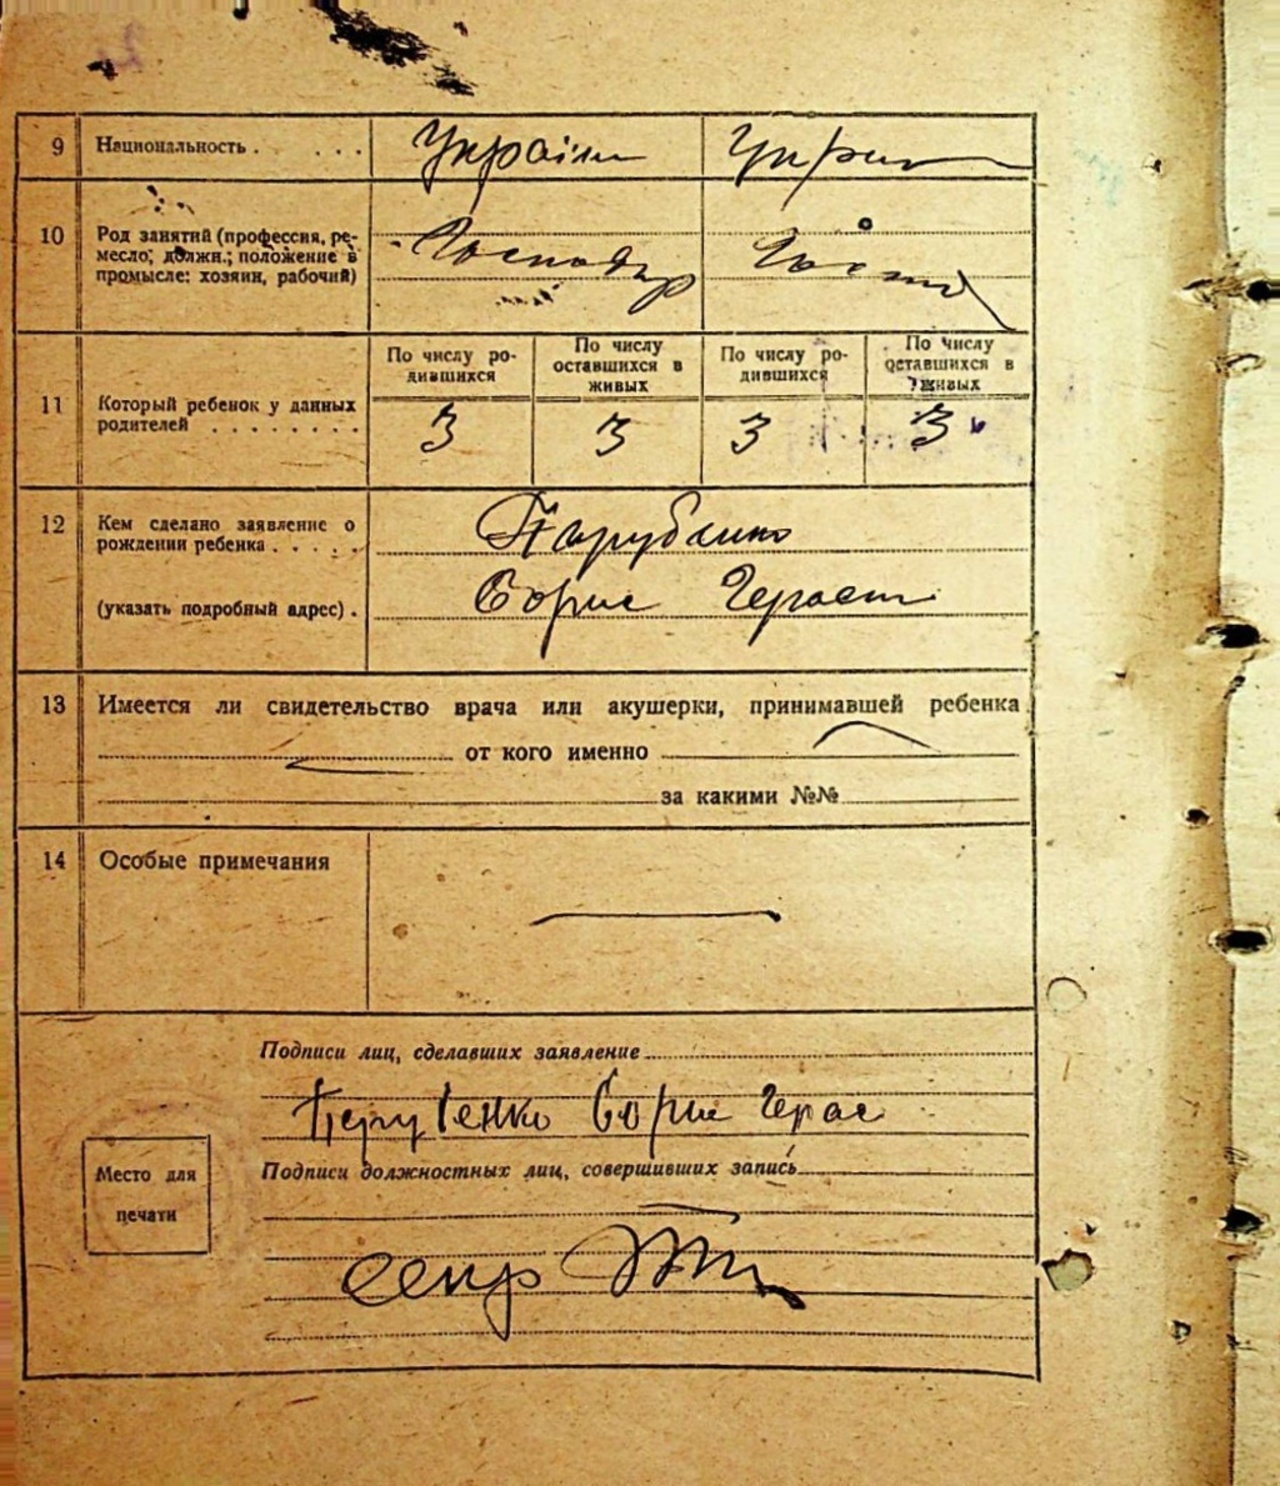 9 Национальность . . . . Україн Укра
10 Род занятий (профессия, ре-
месло, должн.; положение в
промысле: хозяин, рабочий)
Господар
11 Который ребенок у данных
родителей . . . . . . . .
По числу ро-
дившихся
По числу
оставшихся в
живых
По числу ро-
дившихся
По числу
оставшихся в
живых
3 3 3 3
12 Кем сделано заявление о
рождении ребенка . . . . .
(указать подробный адрес) .
Борис Герасим
13 Имеется ли свидетельство врача или акушерки, принимавшей ребенка
от кого именно
за какими №№
14 Особые примечания
Подписи лиц, сделавших заявление
Борис Герас
Подписи должностных лиц, совершивших запись
Место для
печати
секр